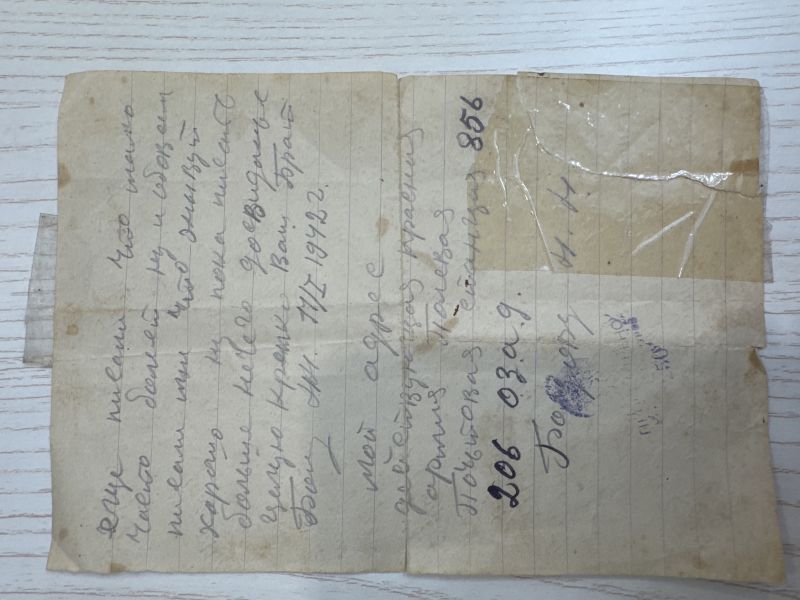 еще писали что тамо
часто болеет ну и обоем
писали что живут
харошо ну пока писать
больше нечего досвиданье
целую крепко Ваш Брат
1942 г.
мой адрес
действующая красная
армия Полевая
Почтовая станция 856
206 О.З.А.Д.
Н.Н.